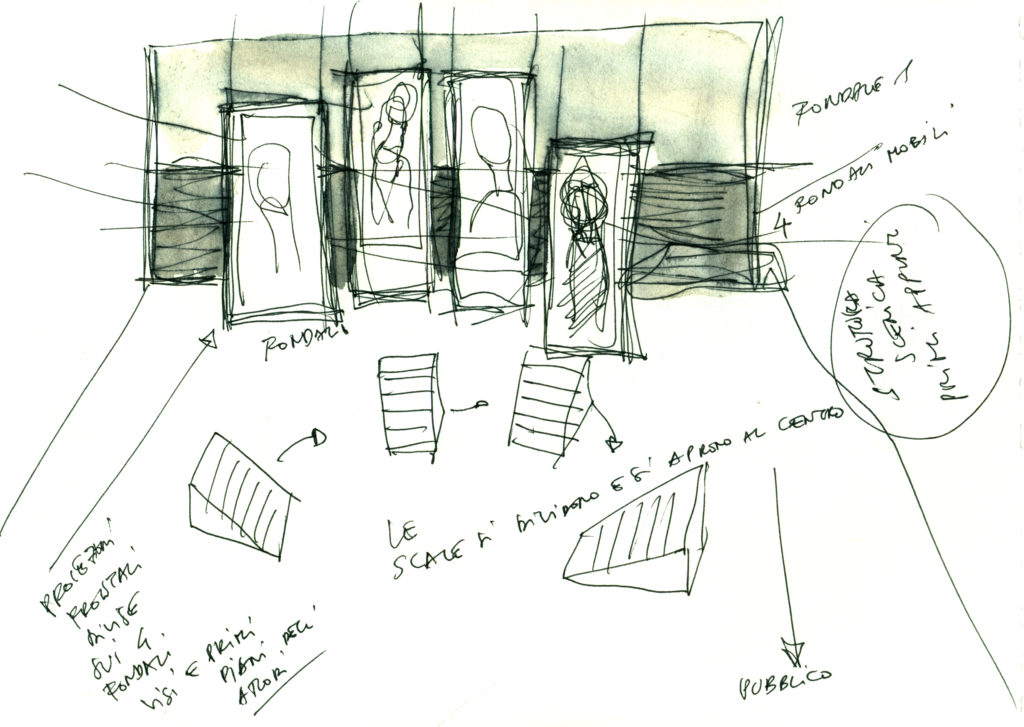 FONDALE 1
4 FONDALI MOBILI
STRUTTURA
SCENICA
PRIMI APPUNTI
FONDALI
LE
SCALE SI DIVIDONO E SI APRONO AL CENTRO
PROIEZIONI
FRONTALI
DIVISE
SUI 4
FONDALI
VISI E PRIMI
PIANI DEGLI
ATTORI
PUBBLICO